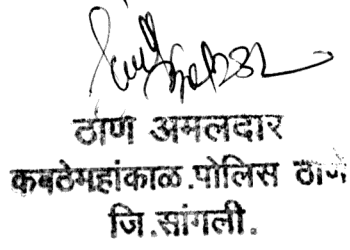 ठाणे अमलदार
कवठेमहांकाळ.पोलिस ठाणे
जि.सांगली.